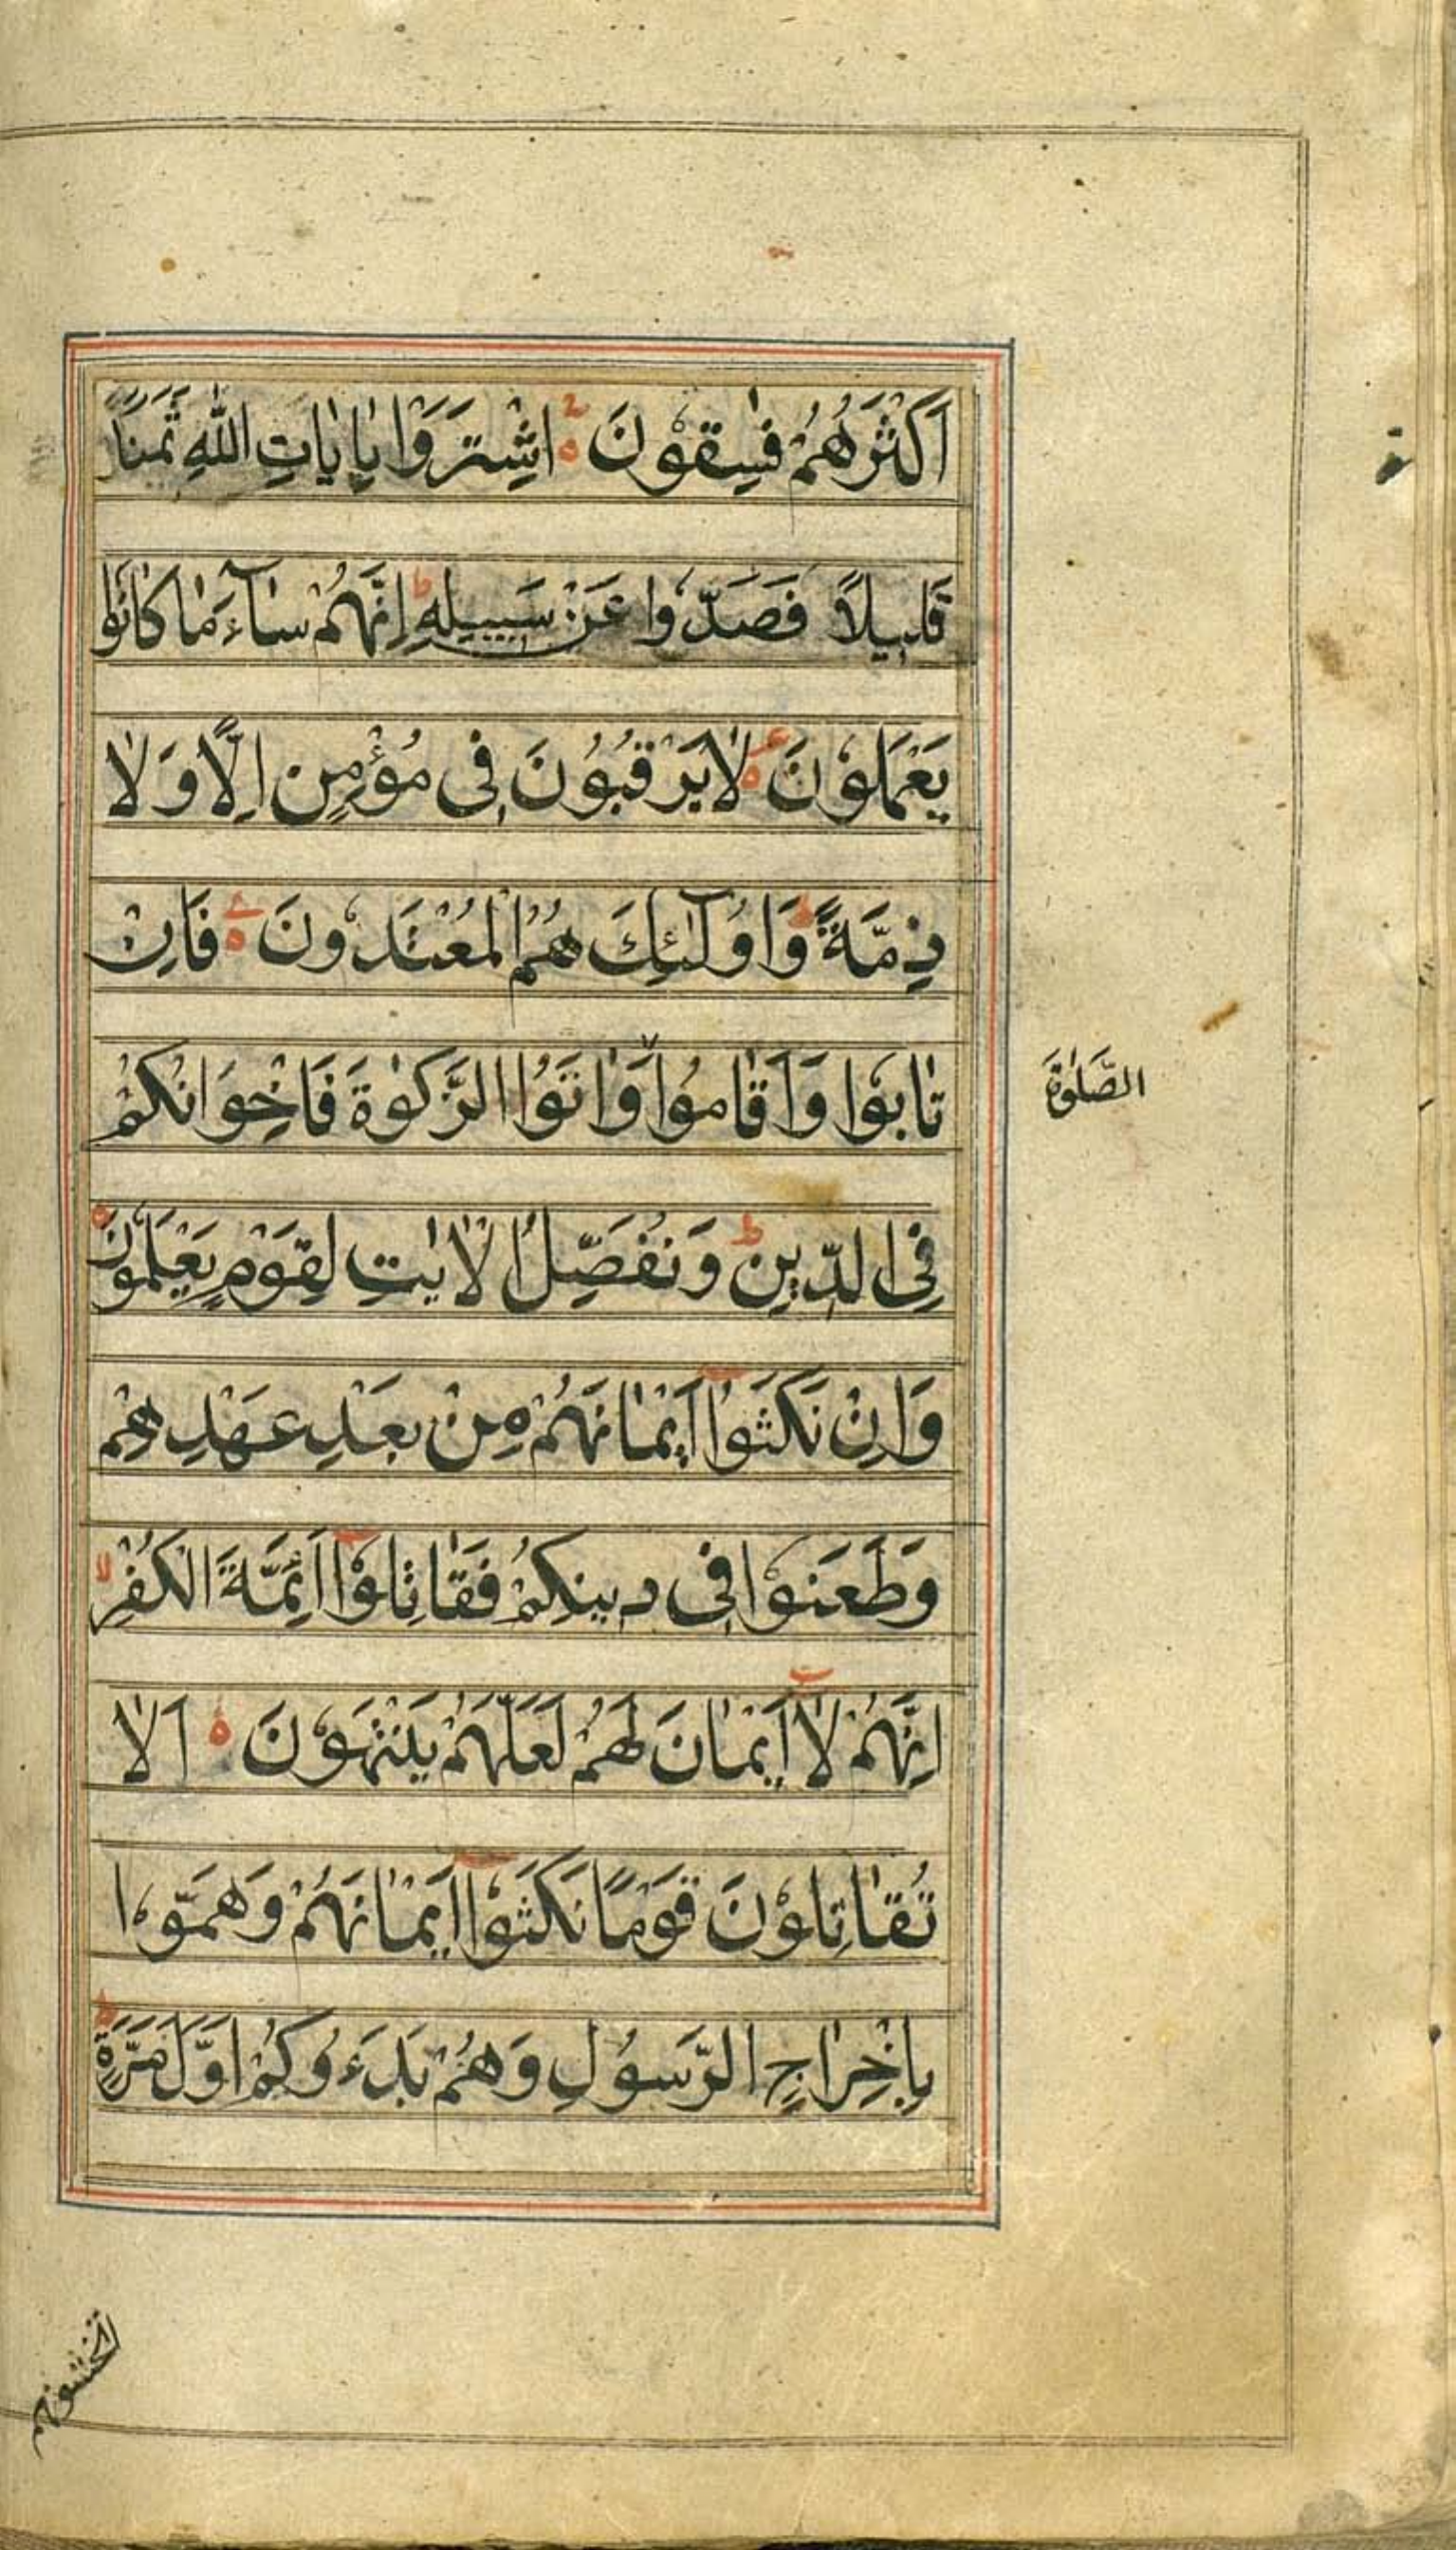 اَكْثَرُهُمْ فٰسِقُوْنَ اِشْتَرَوْا بِاٰيَاتِ اللّٰهِ ثَمَنًا
قَلِيلًا فَصَدُّوا عَنْ سَبِيلِهٖ ط اِنَّهُمْ سَآءَ مَا كَانُوْا
يَعْمَلُوْنَ لَا يَرْقُبُوْنَ فِى مُؤْمِنٍ اِلًّا وَلَا
ذِمَّةً ط وَاُولٰٓئِكَ هُمُ الْمُعْتَدُوْنَ فَاِنْ
تَابُوْا وَاَقَامُوا وَاٰتَوُا الزَّكٰوةَ فَاِخْوَانُكُمْ
الصَّلٰوةَ
فِى الدِّيْنِ ط وَنُفَصِّلُ الْاٰيٰتِ لِقَوْمٍ يَعْلَمُوْنَ
وَاِنْ نَكَثُوْا اَيْمَانَهُمْ مِنْ بَعْدِ عَهْدِهِمْ
وَطَعَنُوْا فِى دِينِكُمْ فَقَاتِلُوْا اَئِمَّةَ الْكُفْرِ لا
اِنَّهُمْ لَا اَيْمَانَ لَهُمْ لَعَلَّهُمْ يَنْتَهُوْنَ اَلَا
تُقَاتِلُوْنَ قَوْمًا نَكَثُوْا اَيْمَانَهُمْ وَهَمُّوْا
بِاِخْرَاجِ الرَّسُوْلِ وَهُمْ بَدَءُوْكُمْ اَوَّلَ مَرَّةٍ ط
اتخشونهم